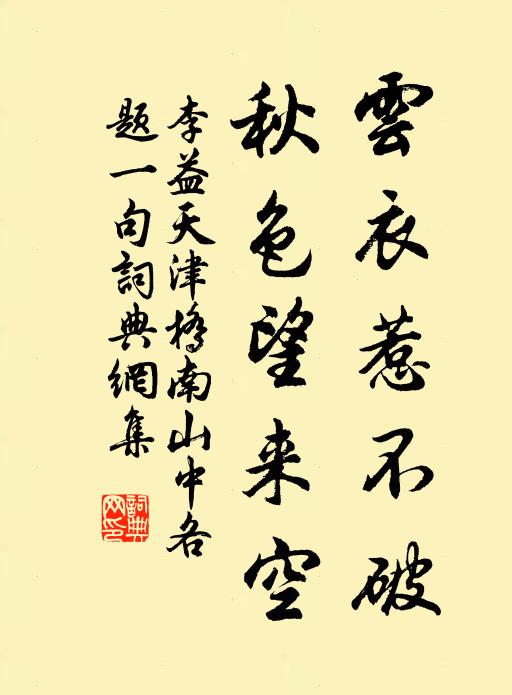 雲衣惹不破
秋色望来空
李益天津橋南山中各
題一句詞典網集
詞典
网印